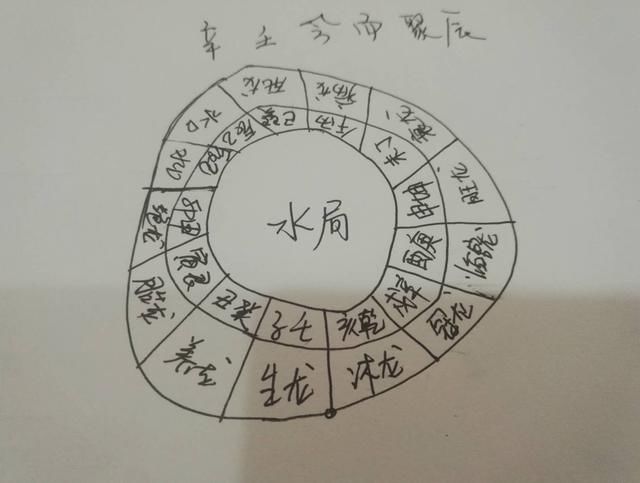 辛壬会而聚辰
水局
死龙
病龙
衰龙
旺龙
临龙
冠龙
沐龙
生龙
养龙
胎龙
绝龙
水口
水口
巳巽
午丙
未丁
申坤
酉庚
戌辛
亥乾
子壬
癸丑
寅艮